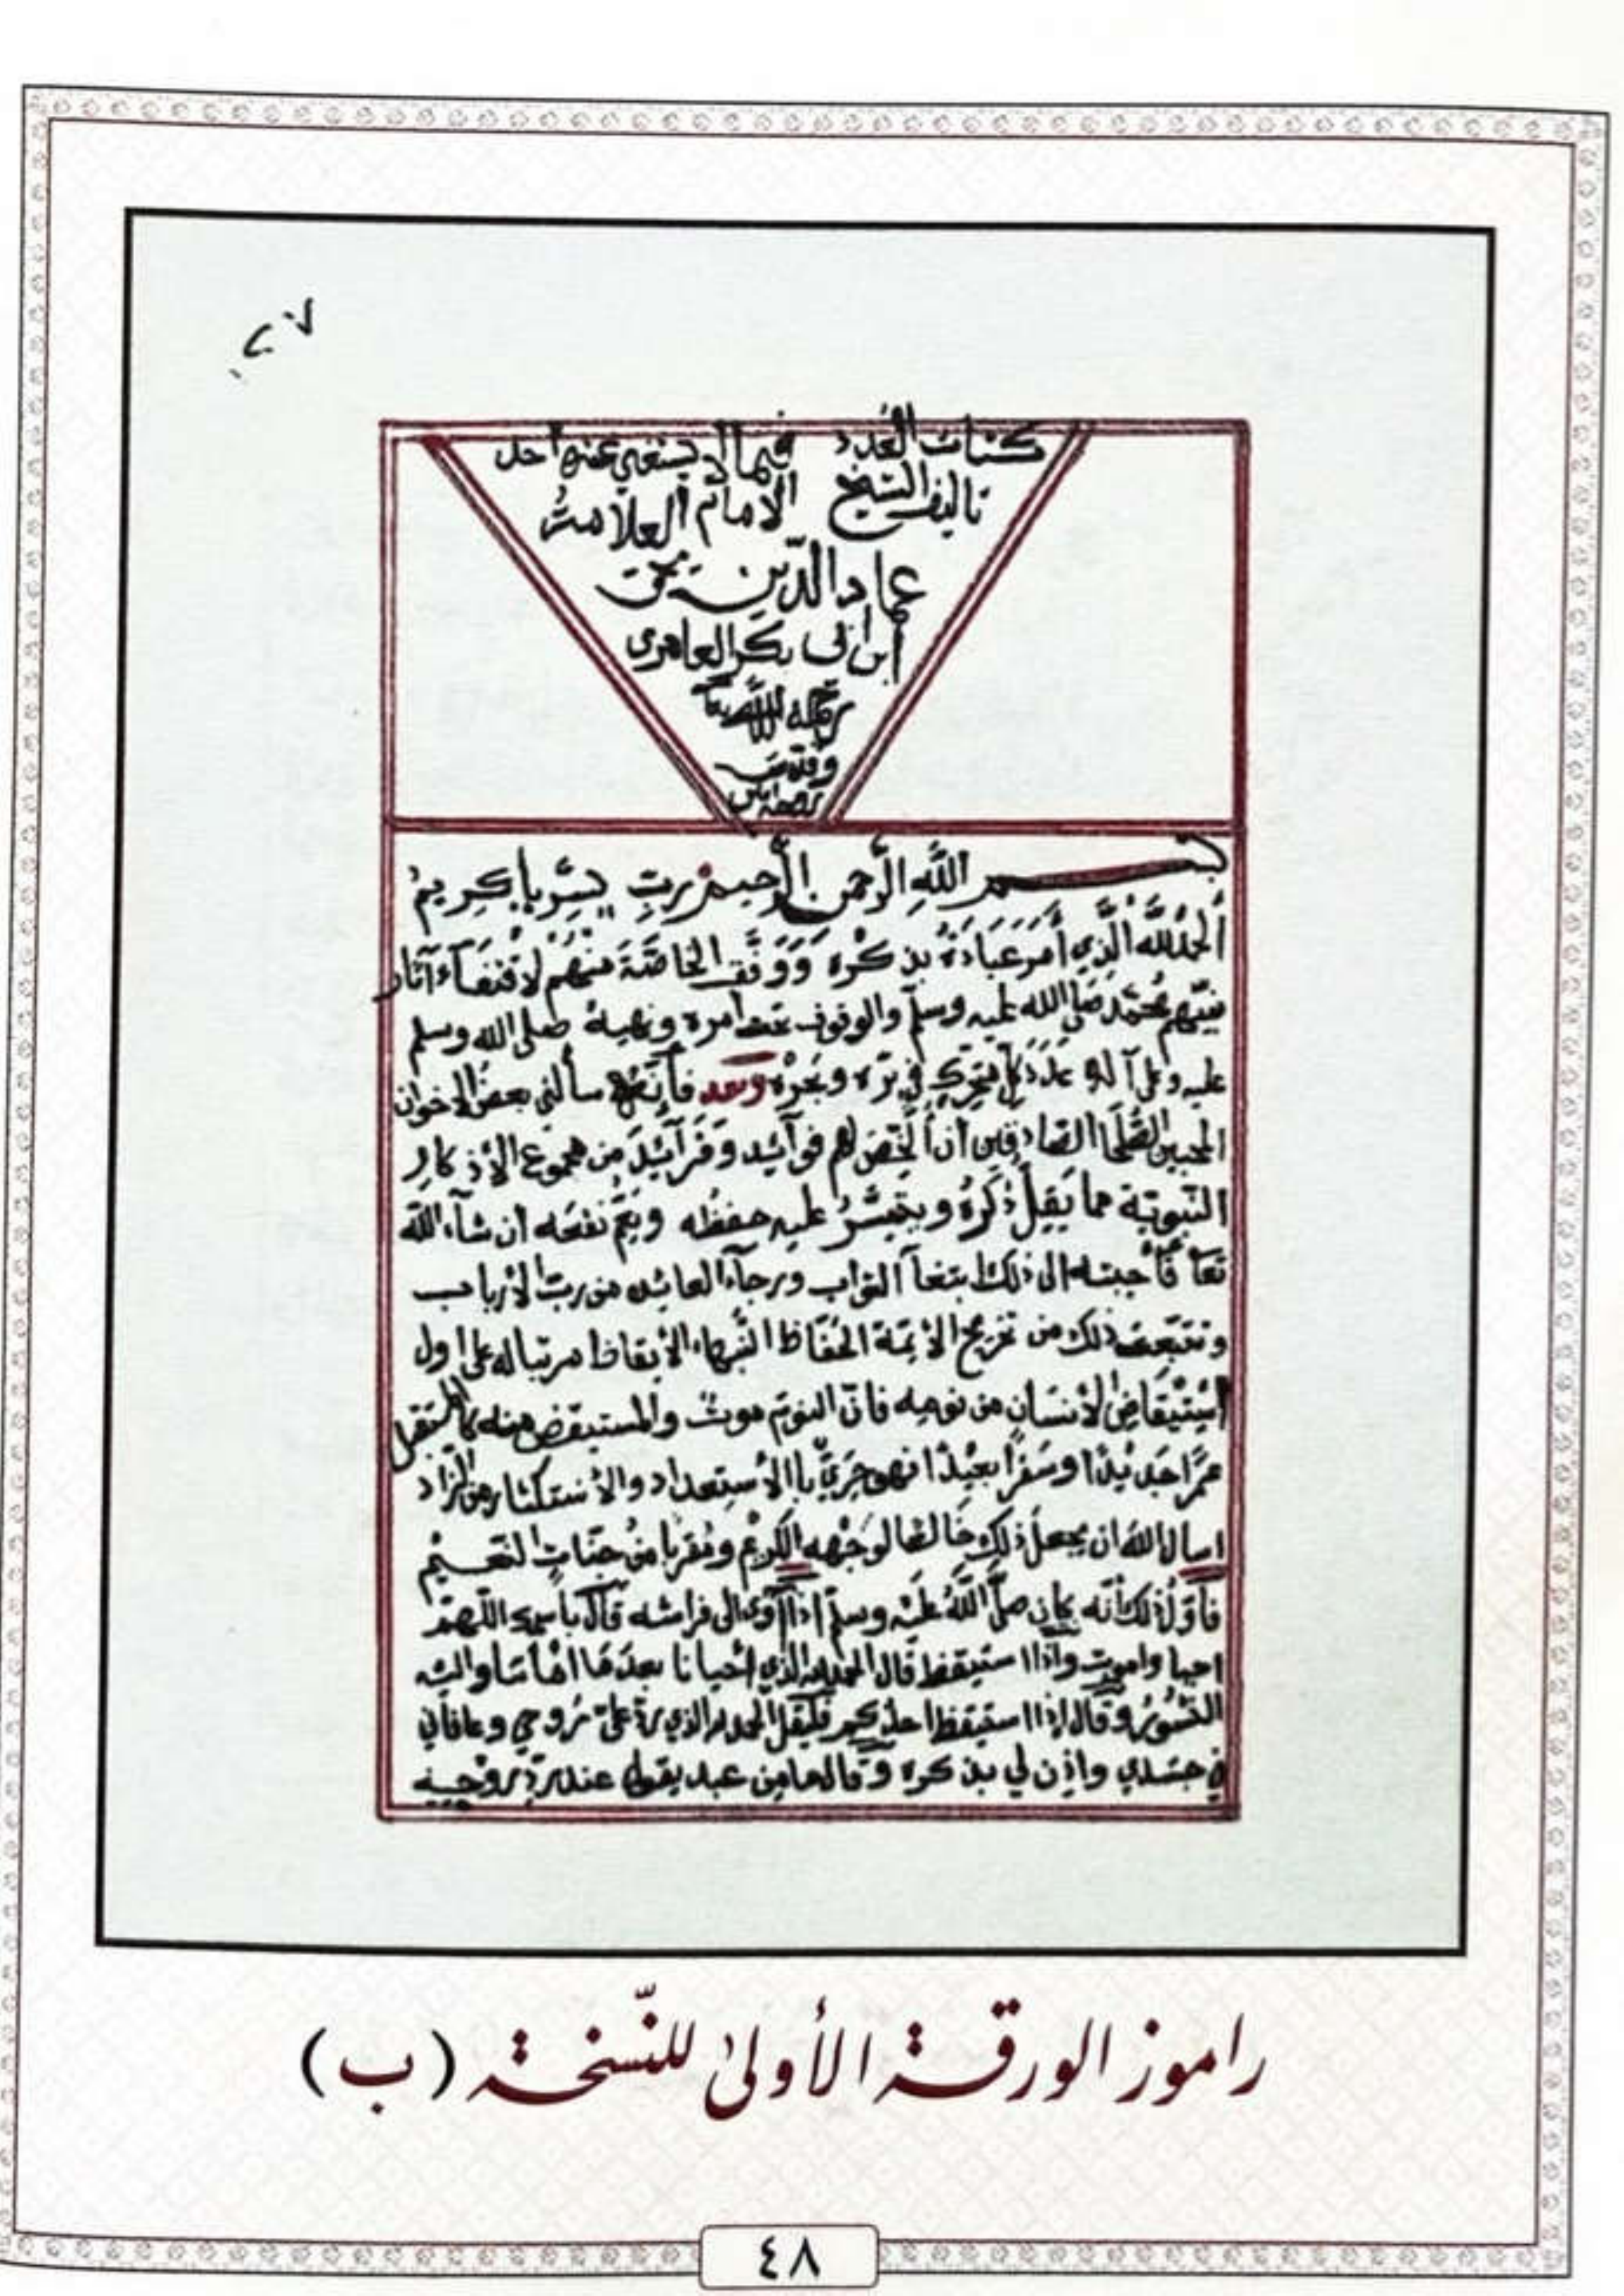 ٠٢٧
كتاب العدد فيما لا يستغني عنه احد
تاليف الشيخ الامام العلامة
عماد الدين يحيى
ابن ابي بكر العامري
رحمه الله تعا
بسم الله الرحمن الرحيم رب يسر يا كريم
اَلحمدُ لله الَّذي أَمَرَ عَبَادَهُ بذكْره وَوَفَّق الخاصَّةَ منهُم لاقتفَآءِ آثار
نبيّهم مُحمَّد صَلى الله عليه وسلّم والوقوف عند أمره ونهيه صلى الله وسلم
عليه وعلى آله عَدَدَ كلِّ متحرِّك في بَرّه وبحْرِه وبعد فأنَّهُ سألني بعضُ الاخوان
المحبين الصُّلحَا الصَّادقين أن أُلَخِّصَ لهم فوآئِد وَفَرَآئِدَ من مجموع الأذكار
النّبويّة مما يَقِلُّ ذِكرُهُ ويتيسَّرُ عليه حفظُه ويعمّ نفعَه ان شآء الله
تعا فأجبته الى ذلك ابتغآ الثواب ورجآء العائده من ربّ الأرباب
وتتبعت ذلك من تخريج الأئِمَّة الحُفّاظ النُّبهاء الأيقاظ مرتبا له على اول
اسْتيْقَاضِ الأنسَان من نومه فانّ النومَ موتٌ والمستيقض منه كالمستقبل
عمرًا جَديْدًا وسَفَرًا بعيْدًا فهو حَرِيٌّ باالأستعداد والأستكثار من الزاد
اسال الله ان يجعل ذلك خَالصًا لوَجْهه الكريم ومُقربا من جنّاتِ النّعيم
فأوّلُ ذلك أنّه كان صلَّى اللهُ عليه وسلّم اذا آوى الى فراشه قآل باسمك اللّهمّ
احيا واموت واذاا ستيقظ قال الحمد لله الذي أحيانا بعدَمَا أمَاتنا واليه
النُّشُورُ وقال إذاا ستيقظ احدكم فليقل الحمد لله الذي ردّ عليّ رُوحي وعافاني
في جسَدي واذِن لي بذكره وقال مامن عبد يقول عند ردّ روحه
راموز الورقة الأولىٰ للنّسخة (ب)
٤٨